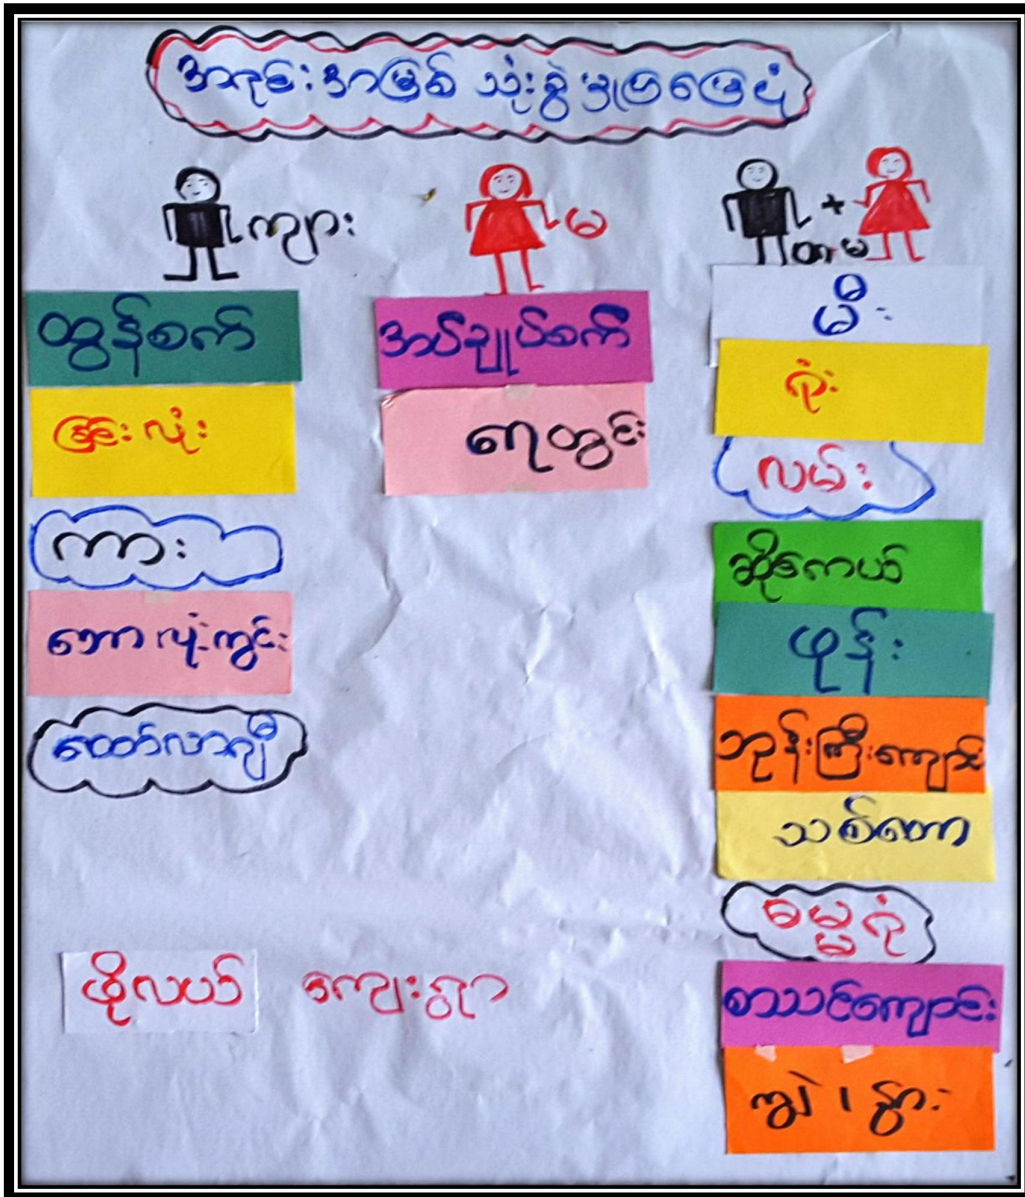 အရင်းအမြစ် သုံးစွဲမှုပြမြေပုံ
ကျား
မ
+
ထား မ
ထွန်စက်
ခြင်းလုံး
ကား
ဘောလုံးကွင်း
ထော်လာဂျီ
အပ်ချုပ်စက်
ရေတွင်း
မီး
ရုံး
လမ်း
ဆိုင်ကယ်
ဖုန်း
ဘုန်းကြီးကျောင်း
သစ်တော
ဓမ္မရုံ
စာသင်ကျောင်း
ကျွဲ ၊ နွား
ဖိုလယ် ကျေးရွာ